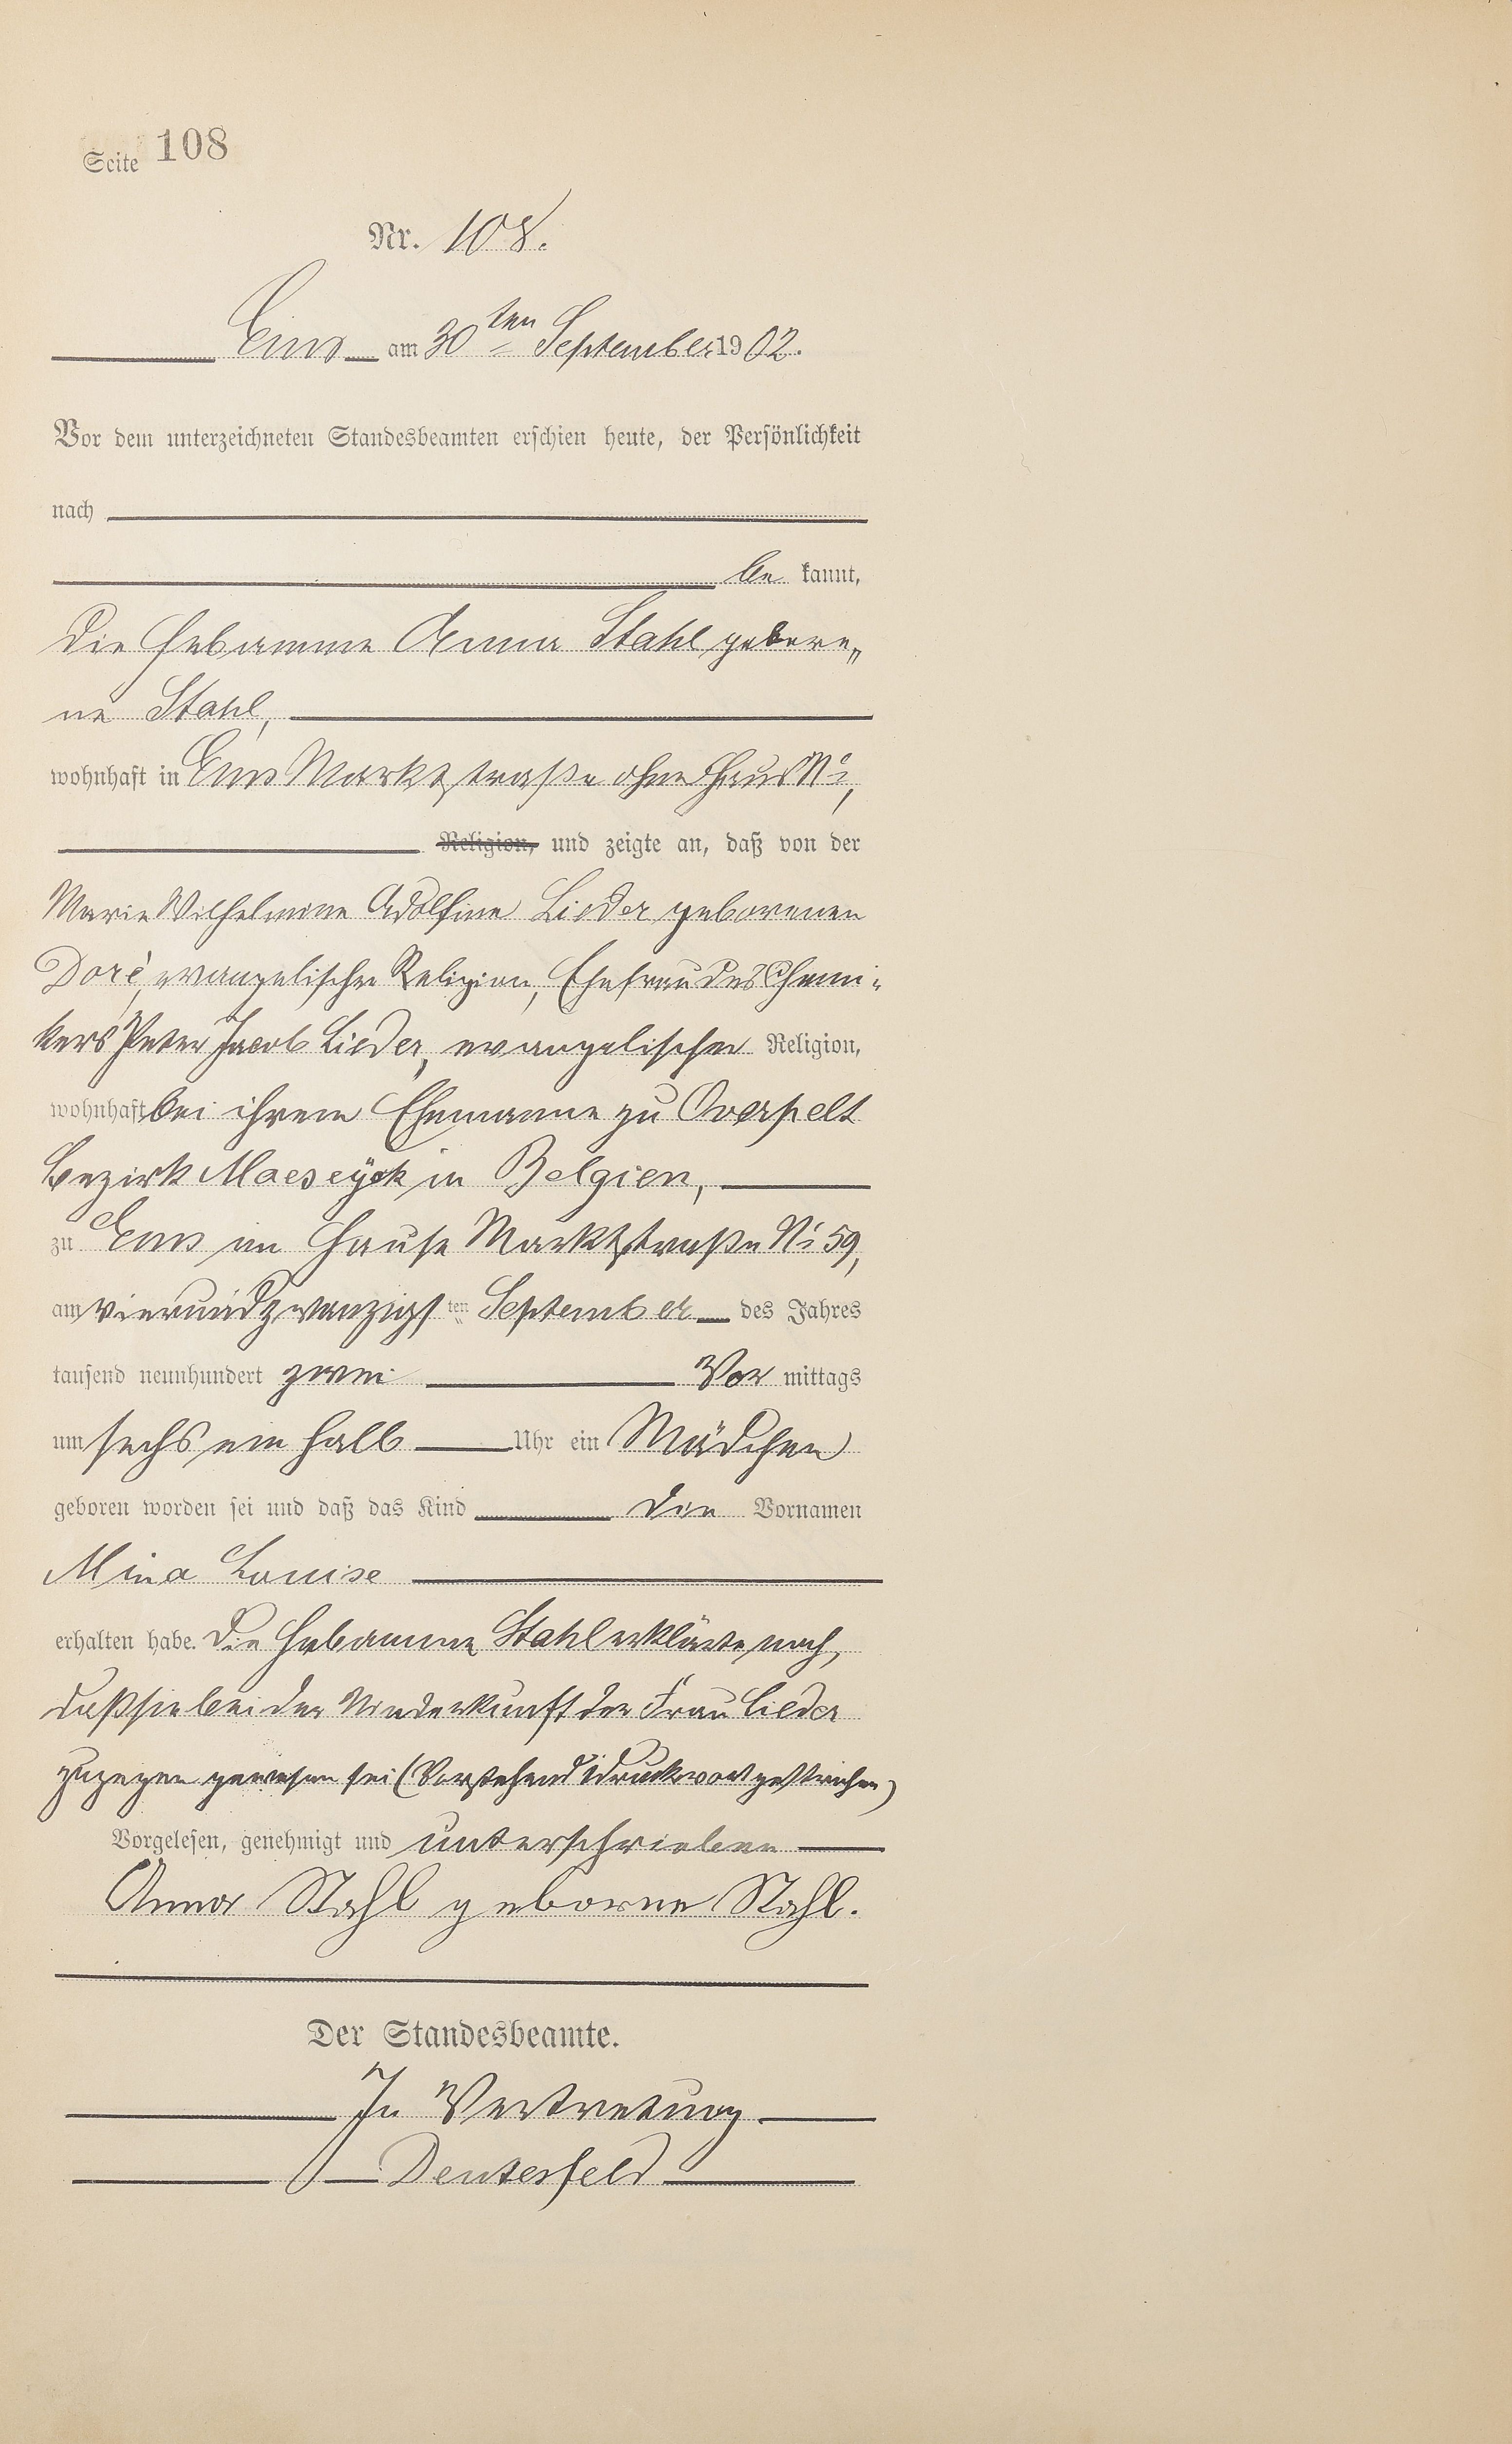 Seite 108
Nr. 108.
Ems am 30ten September 1902.
Vor dem unterzeichneten Standesbeamten erschien heute, der Persönlichkeit
nach
be kannt,
die Hebamme Anna Stahl gebore„
ne Stahl,
wohnhaft in Ems Marktstraße ohne Haus No,
Religion, und zeigte an, daß von der
Marie Wilhelmine Adolfine Lieder geborenen
Doré, evangelischer Religion, Ehefrau des Chemi-
kers Peter Jacob Lieder, evangelischer Religion,
wohnhaft bei ihrem Ehemanne zu Overpelt
Bezirk Maeseÿck in Belgien,
zu Ems im Hause Marktstraße No 59,
am vierundzwanzigsten September des Jahres
tausend neunhundert zwei Vor mittags
um sechs ein halb Uhr ein Mädchen
geboren worden sei und daß das Kind die Vornamen
Mina Louise
erhalten habe. Die Hebamme Stahl erklärte noch,
daß sie bei der Niederkunft der Frau Lieder
zugegen gewesen sei (Vorstehend 1 Druckwort gestrichen)
Vorgelesen, genehmigt und unterschrieben
Anna Stahl geborne Stahl.
Der Standesbeamte.
In Vertretung
Deutesfeld